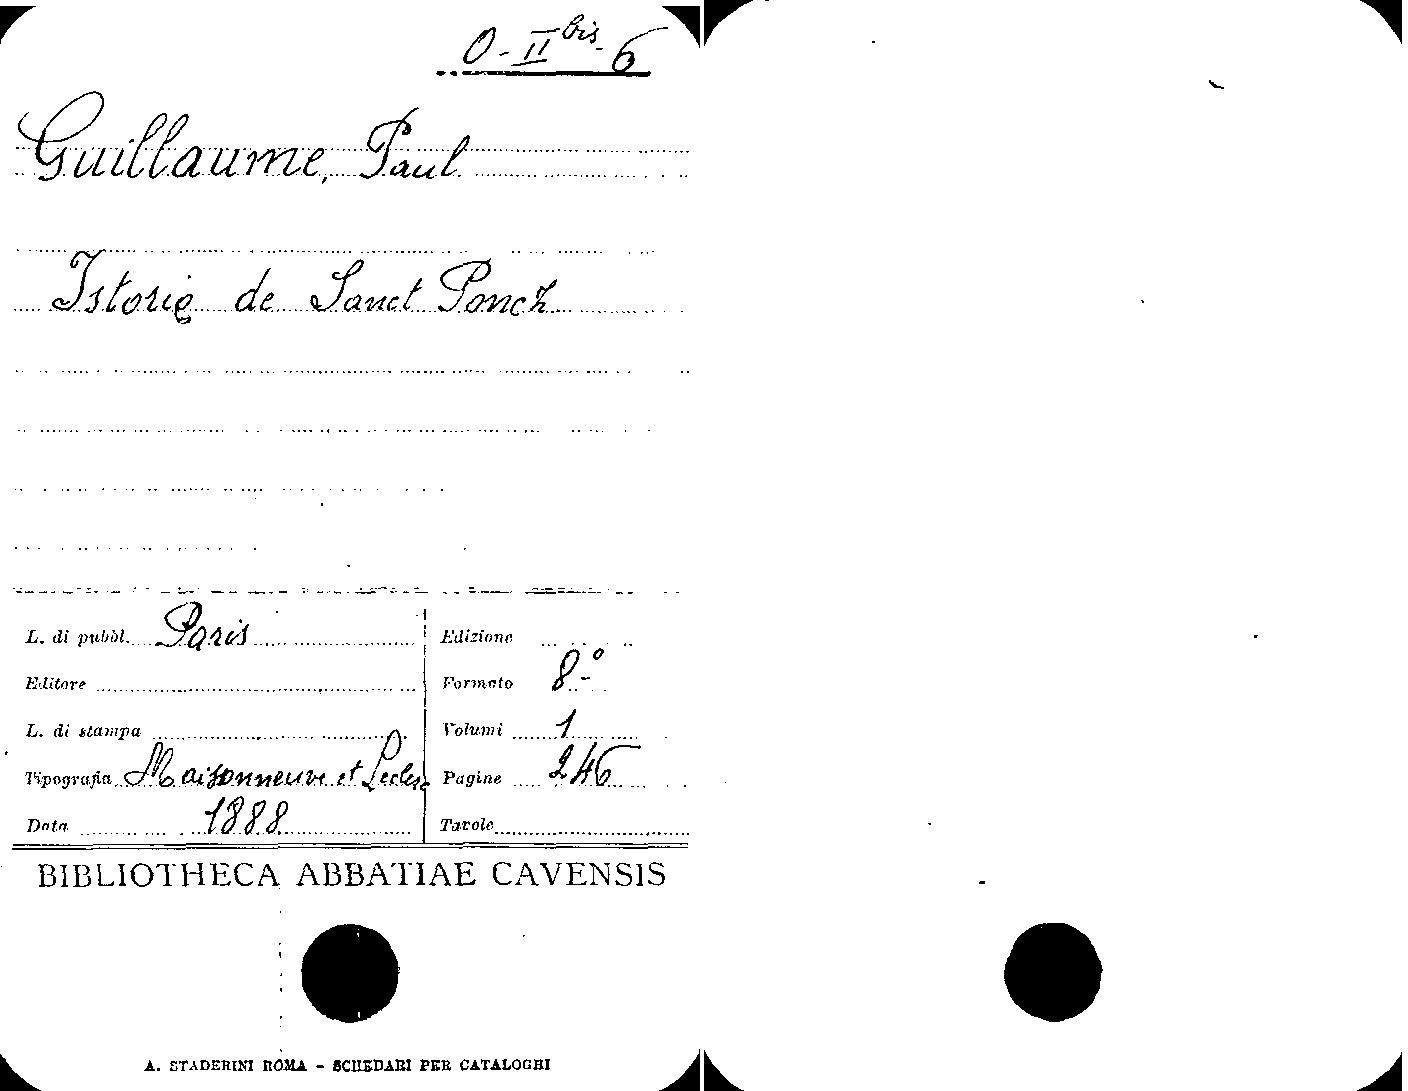 O-II bis-6
Guillaume, Paul
Istorio de Sanct Poncz
L. di pubbl. Paris
Edizione
Editore
Formato 8.º
L. di stampa
Volumi 1
Tipografia Maisonneuve et Leclerc
Pagine 246
Data 1888
Tavole
BIBLIOTHECA ABBATIAE CAVENSIS
A. STADERINI ROMA - SCHEDARI PER CATALOGHI